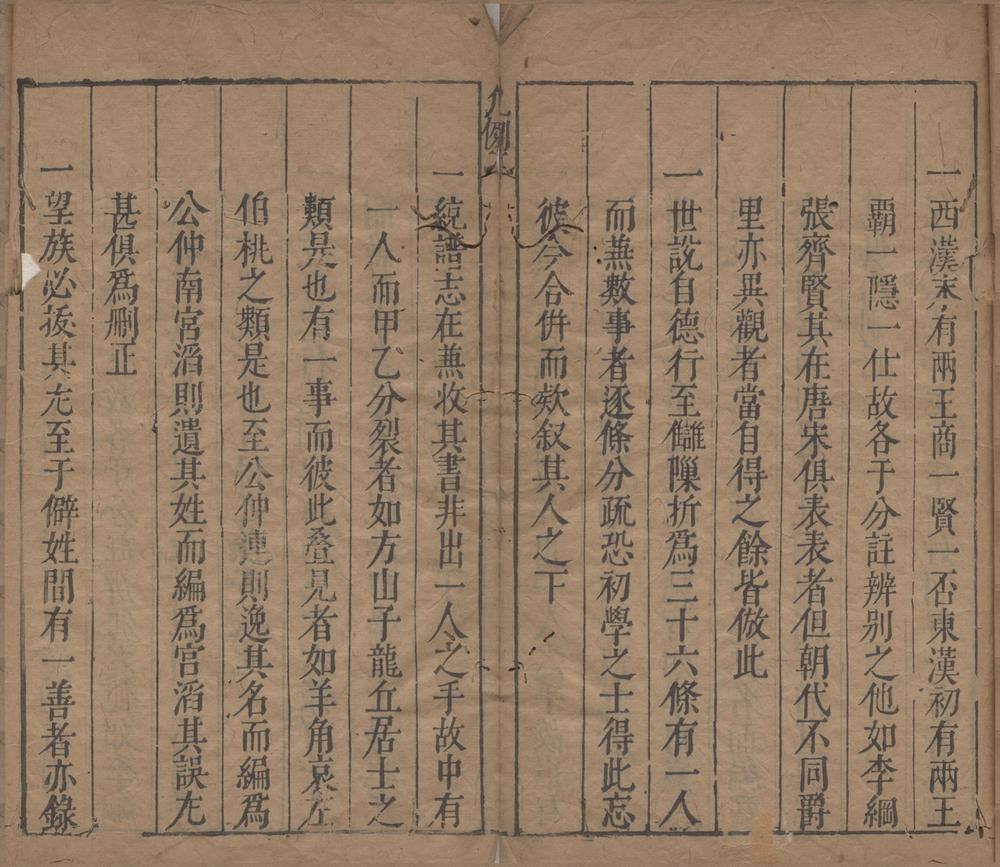 一西漢末有兩王商一賢一否東漢初有兩王
霸一隱一仕故各于分註辨别之他如李綱
張齊賢其在唐宋俱表表者但朝代不同爵
里亦異觀者當自得之餘皆倣此
一世說自德行至讎隟折爲三十六條有一人
而兼數事者逐條分疏恐初學之士得此忘
彼今合併而欵叙其人之下
凡例二
一統譜志在兼收其書非出一人之手故中有
一人而甲乙分裂者如方山子龍丘居士之
類是也有一事而彼此叠見者如羊角哀左
伯桃之類是也至公仲連則逸其名而編爲
公仲南宮滔則遺其姓而編爲宮滔其誤尤
甚俱爲刪正
一望族必拔其尤至于僻姓間有一善者亦錄